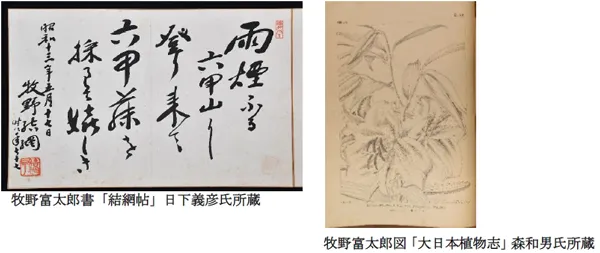 雨煙ふる
六甲山に
登来て
六甲藤を
採るぞ嬉しき
昭和十三年五月十七日
牧野結網
牧野富太郎書「結網帖」日下義彦氏所蔵
牧野富太郎図「大日本植物志」森和男氏所蔵